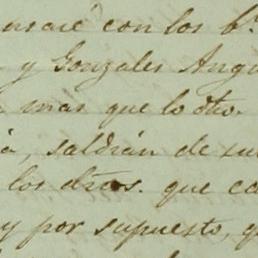 con los b.
y Gonzales Angu
mas que lo otro.
a, saldrán de su
los dros. que co
y por supuesto, q